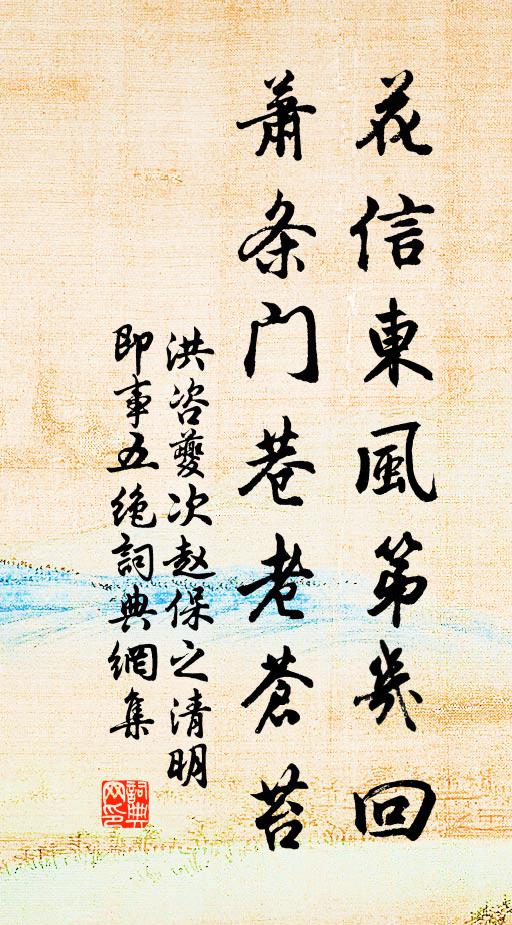 花信東風第幾回
蕭条門巷老蒼苔
洪咨夔次赵保之清明
即事五绝詞典網集
詞典网印